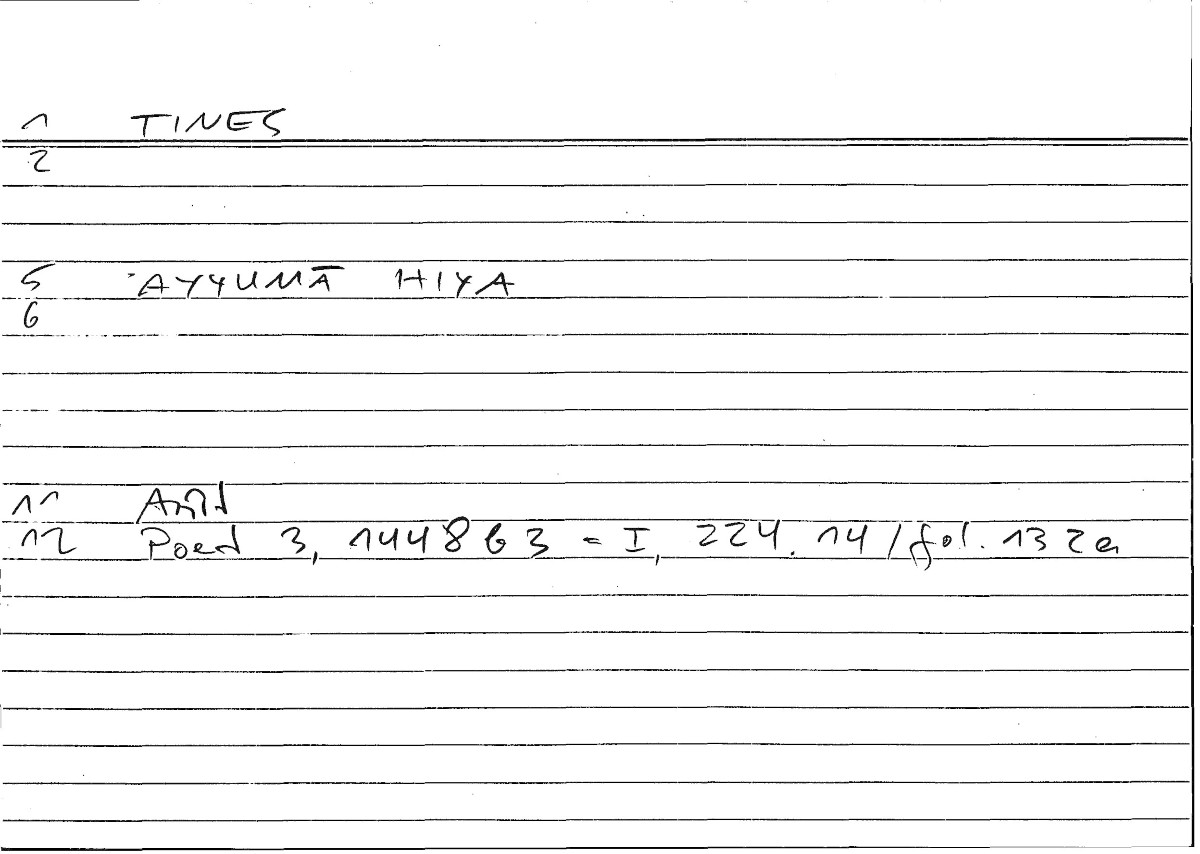 1 TINES
2
5 'AYYUMĀ HIYA
6
11 Arist
12 Poet 3, 1448 b 3 = I, 224.14 / fol. 132a